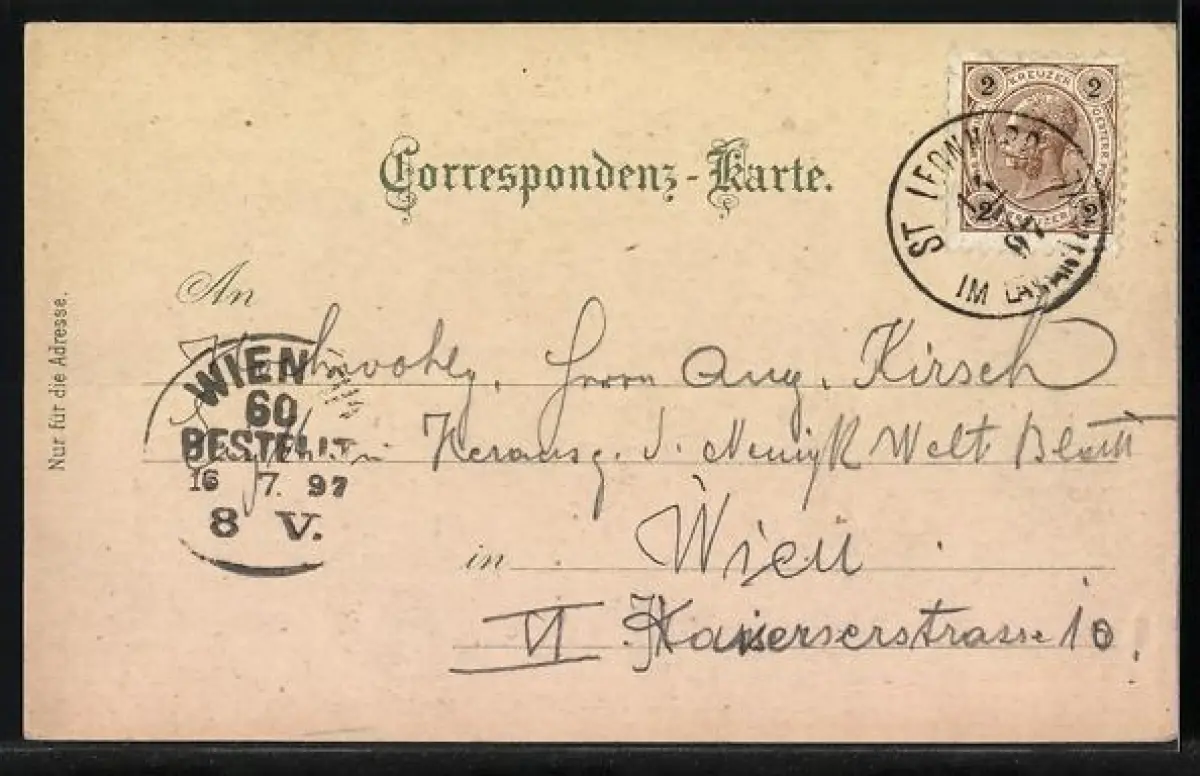 Correspondenz-Karte.
2 KREUZER 2
2 KREUZER 2
ST LEONHARD
97
IM LAVANTTAL
An
Nur für die Adresse.
Herrn Aug. Kirsch
Herausg. d. Welt Blatt
WIEN
60
BESTELLT
16 7. 97
8 V.
in Wien
VI. Kaiserstrasse 10